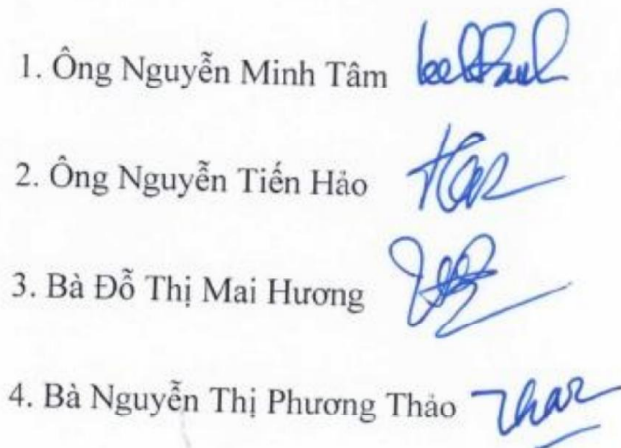 1. Ông Nguyễn Minh Tâm
2. Ông Nguyễn Tiến Hảo
3. Bà Đỗ Thị Mai Hương
4. Bà Nguyễn Thị Phương Thảo